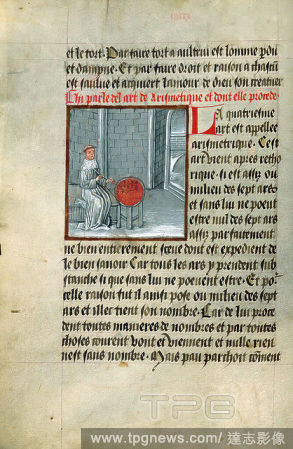 et le tort. Par faire tort a aultrui est lomme pou
et dampne. Et par faire droit et raison a chascun
est saulve et acquiert lamour de dieu son createur
Cy parle de l art de arismetique et dont elle procede
La quatriesme
art est appellee
arismetrique. Cest
art vient apres retho
rique. et si est assis ou
milieu des sept ars
et sans lui ne poent
estre nul des sept ars
assis parfaitement
ne bien entierement sceue dont est expedient de
le bien savoir Car tous les ars y prendent sub
stance si que sans lui ne poeuent estre. Et po
celle raison fut il ainsi pose ou milieu des sept
ars et illec tient son nombre. Car de lui proce
dent toutes manieres de nombres et par toutes
choses courent vont et viennent et nulle rien
nest sans nombre. Mais pau parchoit coment
TPG
www.tpgnews.com / 達志影像